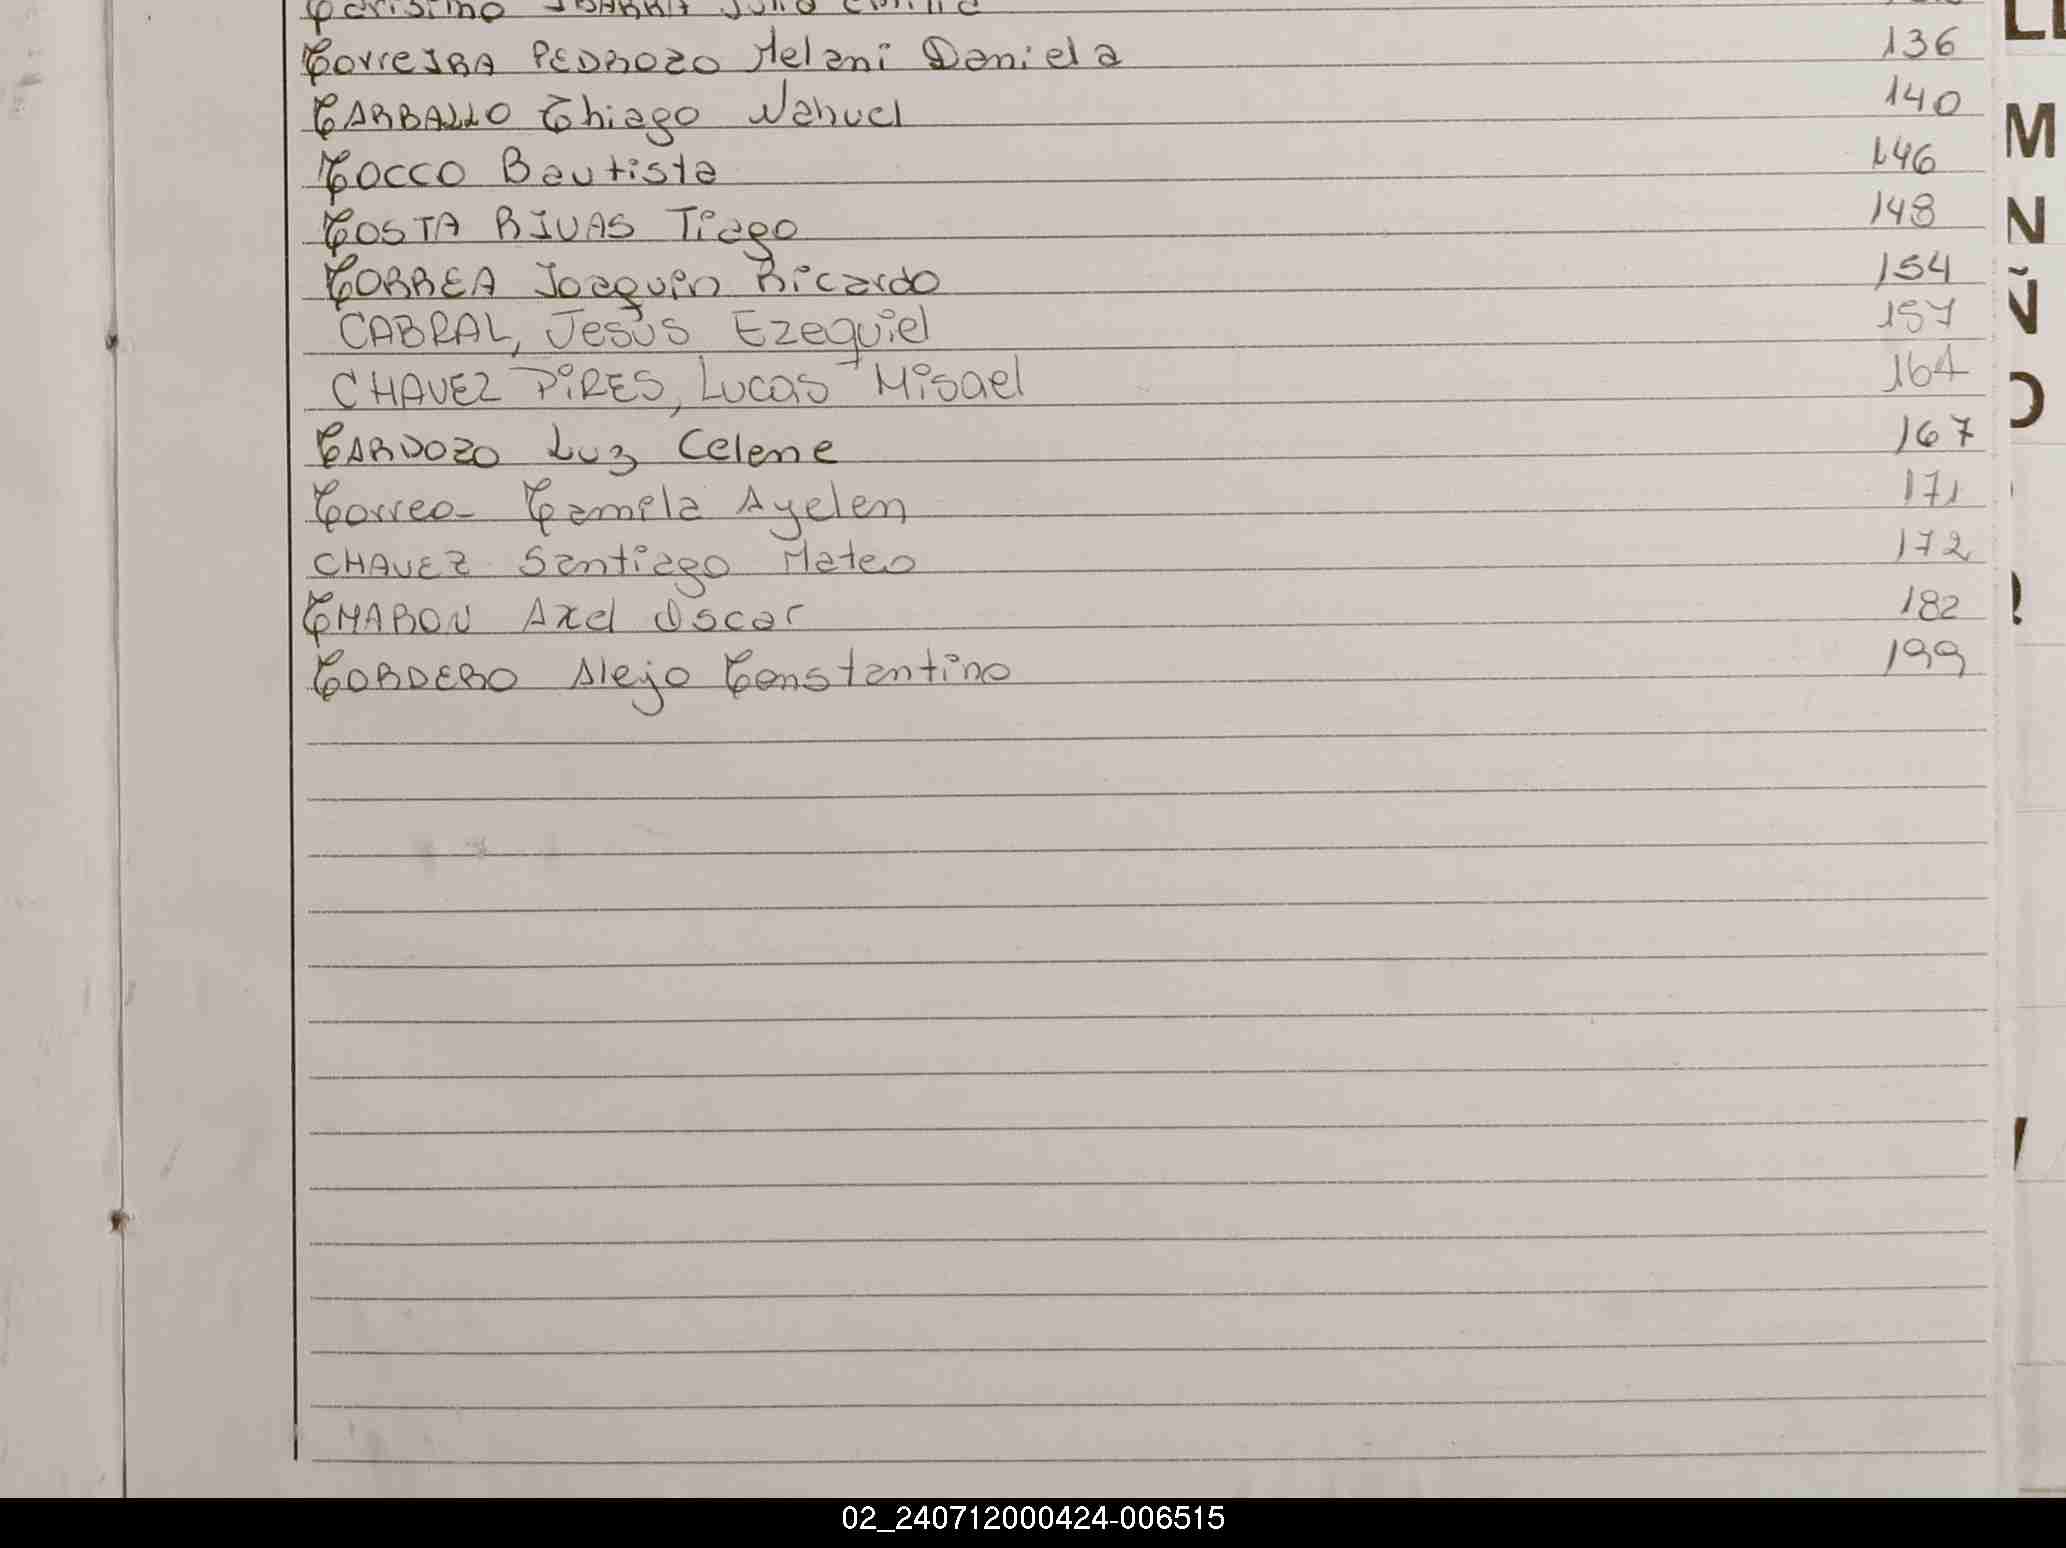 CorreIRA PEDROZO Melani Daniela 136
CARBALLO Thiago Nahuel 140
COCCO Bautista 146
COSTA RIVAS Tiago 148
CORREA Joaquin Ricardo 154
CABRAL, Jesús Ezequiel 157
CHAVEZ PIRES, Lucas Misael 164
CARDOZO Luz Celene 167
Correa Camila Ayelen 171
CHAVEZ Santiago Mateo 172
CHARON Axel Oscar 182
CORDERO Alejo Constantino 199
M
N
Ñ
02_240712000424-006515